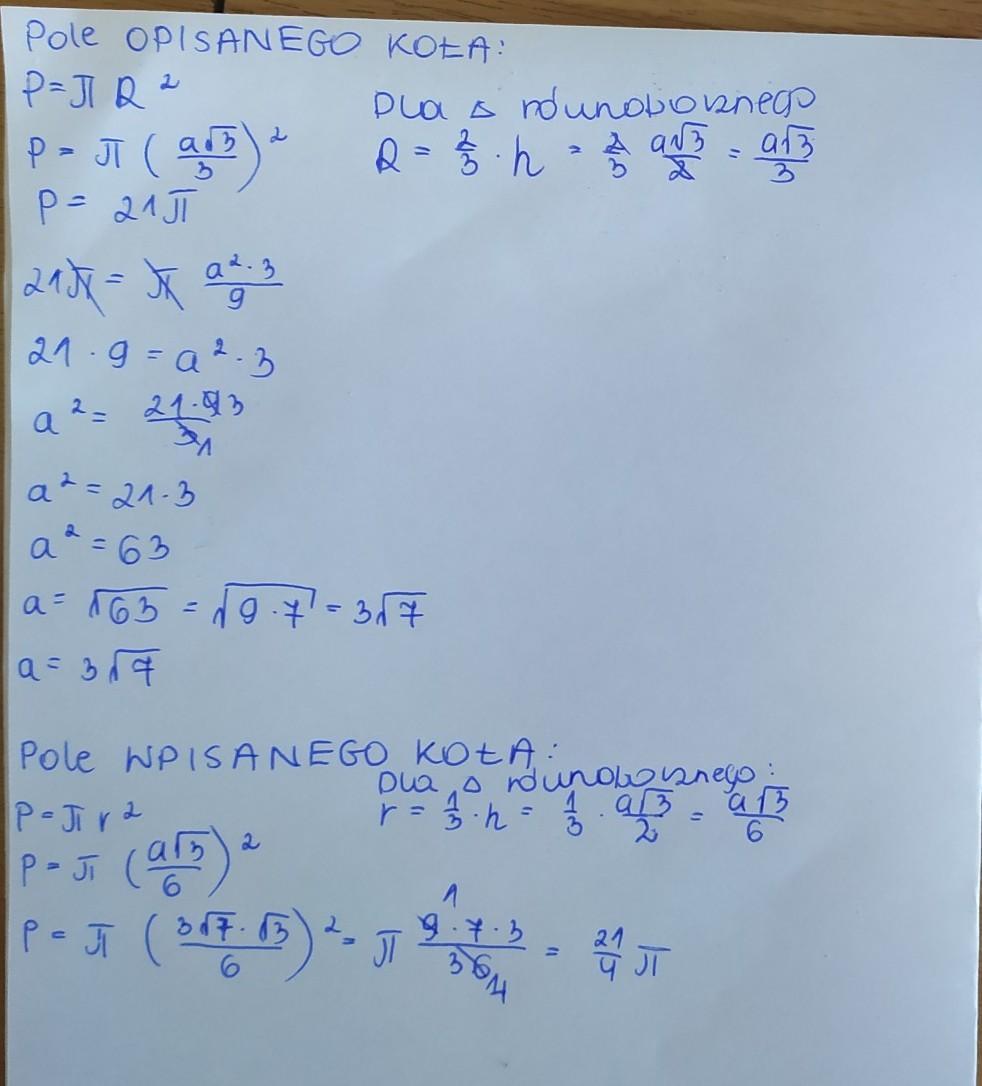 Pole OPISANEGO KOŁA:
P = π R²
Dla △ równobocznego
P = π (a√3/3)²
R = 2/3 · h = 2/3 a√3/2 = a√3/3
P = 21π
21π = π a²·3/9
21 · 9 = a² · 3
a² = 21·9 3/3 1
a² = 21·3
a² = 63
a = √63 = √9·7 = 3√7
a = 3√7
Pole WPISANEGO KOŁA:
Dla △ równobocznego:
P = π r²
r = 1/3 · h = 1/3 · a√3/2 = a√3/6
P = π (a√3/6)²
P = π (3√7·√3/6)² = π 1 9·7·3/36 4 = 21/4 π